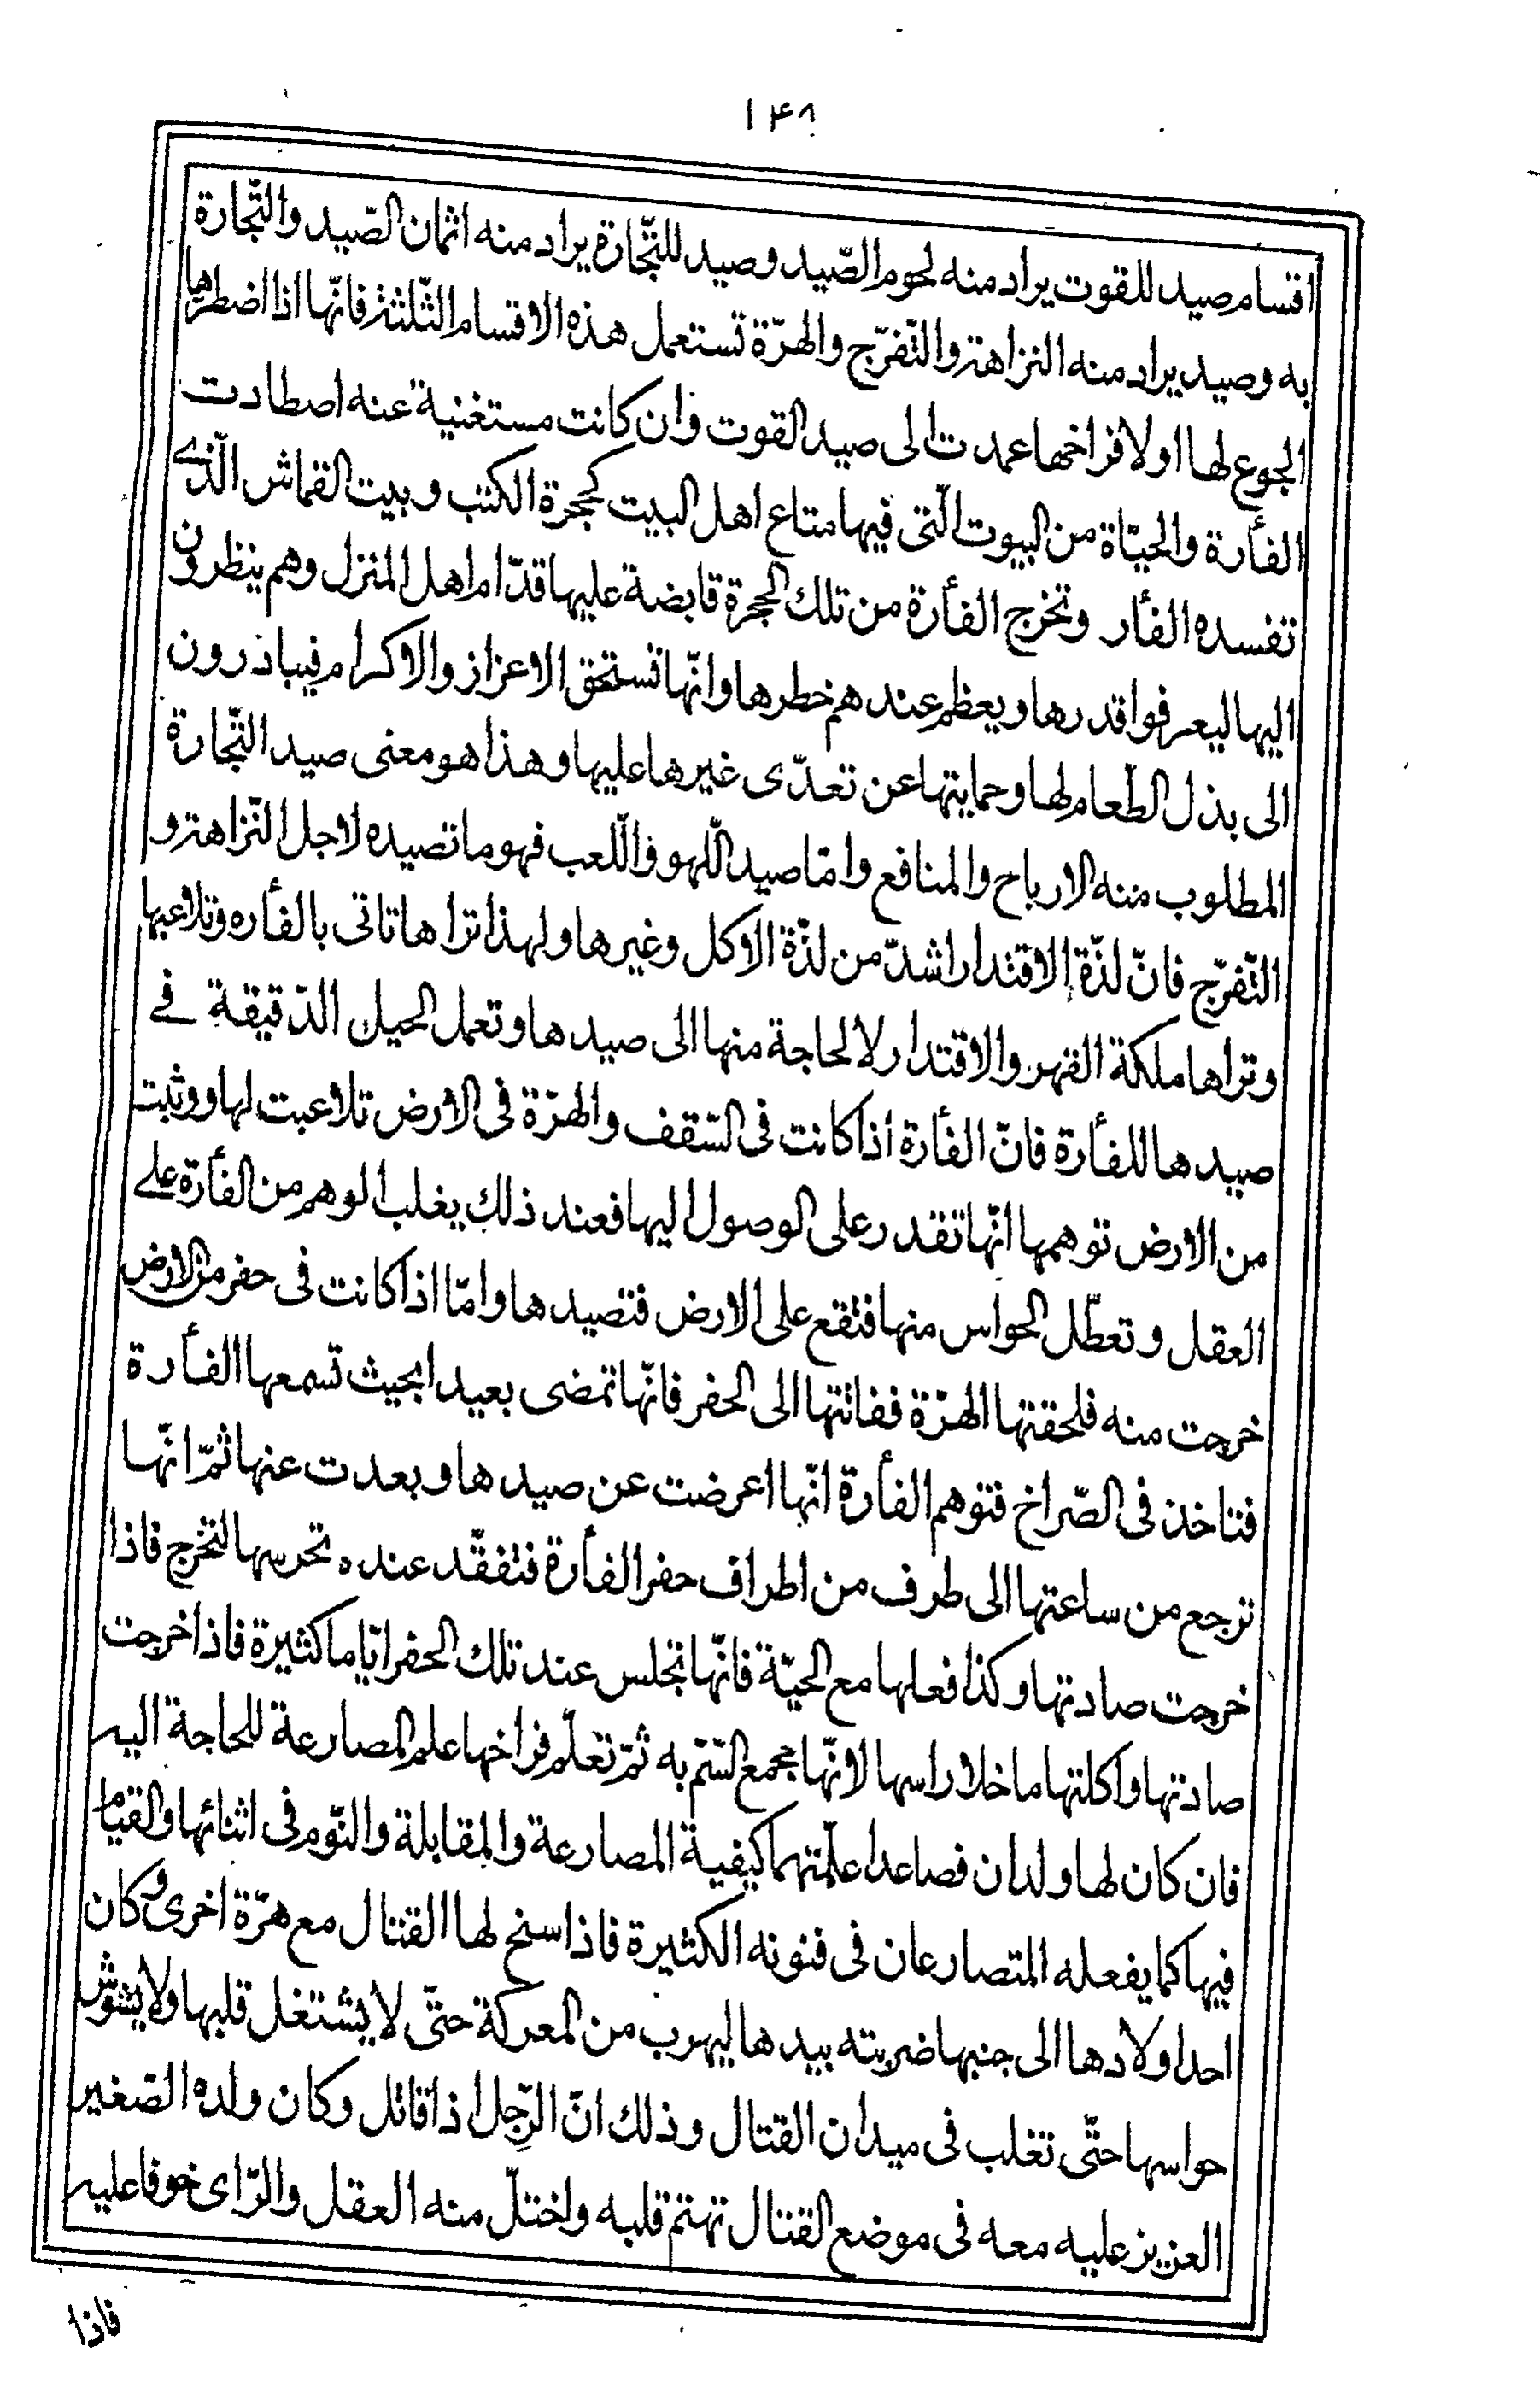 ١٤٨
اقسام صيد للقوت يراد منه لحوم الصّيد وصيد للتّجارة يراد منه اثمان الصّيد والتّجارة
به وصيد يراد منه النزاهة والتّفرّج والهرّة تستعمل هذه الاقسام الثّلثة فانّها اذا اضطرها
الجوع لها او لافراخها عمدت الى صيد القوت وان كانت مستغنية عنه اصطادت
الفأرة والحيّاة من البيوت الّتى فيها متاع اهل البيت كحجرة الكتب وبيت القماش الّذى
تفسده الفأر وتخرج الفأرة من تلك الحجرة قابضة عليها قدّام اهل المنزل وهم ينظرون
اليها ليعرفوا قدرها ويعظم عندهم خطرها وانّها تستحق الاعزاز والاكرام فيباذرون
الى بذل الطّعام لها وحمايتها عن تعدّى غيرها عليها وهذا هو معنى صيد التّجارة
المطلوب منه الارباح والمنافع وامّا صيد اللّهو واللّعب فهو ما تصيده لاجل النّزاهة و
التّفرّج فانّ لذّة الاقتدار اشدّ من لذّة الاكل وغيرها ولهذا تراها تاتى بالفأره وتلاعبها
وتراها ملكة القهر والاقتدار لا لحاجة منها الى صيدها وتعمل الحيل الدّقيقة فے
صيدها للفأرة فانّ الفأرة اذا كانت فى السّقف والهرّة فى الارض تلاعبت لها ووثبت
من الارض توهمها انّها تقدر على الوصول اليها فعند ذلك يغلب الوهم من الفأرة علے
العقل وتعطّل الحواس منها فتقع على الارض فتصيدها وامّا اذا كانت فى حفر من الارض
خرجت منه فلحقتها الهرّة ففاتتها الى الحفر فانّها تمضى بعيدا بحيث تسمعها الفأرة
فتاخذ فى الصّراخ فتوهم الفأرة انّها اعرضت عن صيدها وبعدت عنها ثمّ انّها
ترجع من ساعتها الى طرف من اطراف حفر الفأرة فتفقّد عنده تحرسها لتخرج فاذا
خرجت صادتها وكذا فعلها مع الحيّة فانّها تجلس عند تلك الحفر ايّاما كثيرة فاذا خرجت
صادتها واكلتها ما خلا راسها لانّها مجمع السّمّ به ثمّ تعلّم فراخها علم المصارعة للحاجة اليه
فان كان لها ولدان فصاعدا علّمتهما كيفية المصارعة والمقابلة والنّوم فى اثنائها والقيام
فيها كما يفعله المتصارعان فى فنونه الكثيرة فاذا سنح لها القتال مع هرّة اخرى وكان
احد اولادها الى جنبها ضربته بيدها ليهرب من المعركة حتّى لا يشتغل قلبها ولا يشوّش
حواسها حتّى تغلب فى ميدان القتال وذلك انّ الرّجل اذا قاتل وكان ولده الصّغير
العزيز عليه معه فى موضع القتال تهتم قلبه واختلّ منه العقل والرّاى خوفا عليه
فاذا